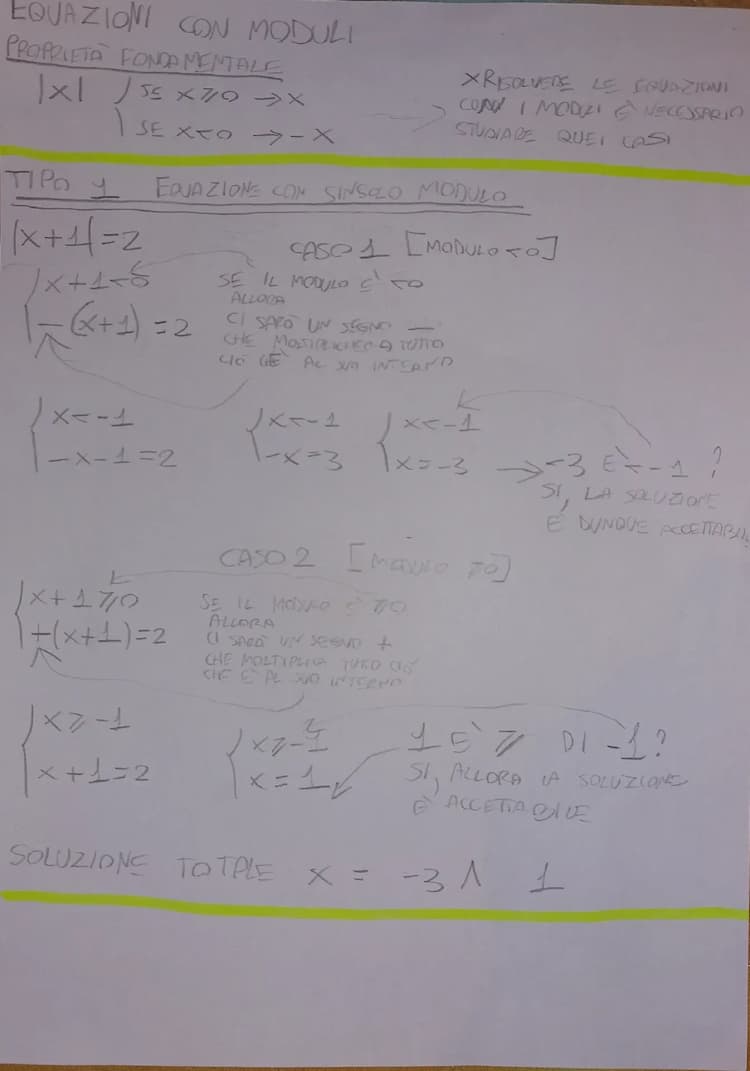 EQUAZIONI CON MODULI
PROPRIETÀ FONDAMENTALE
|x| { SE x≥0 → x
SE x<0 → -x
x RISOLVERE LE EQUAZIONI
CON I MODULI È NECESSARIO
STUDIARE QUEI CASI
TIPO 1 EQUAZIONE CON SINGOLO MODULO
|x+1|=2
CASO 1 [MODULO <0]
{ x+1<0
-(x+1)=2
SE IL MODULO È <0
ALLORA
CI SARÀ UN SEGNO —
CHE MOLTIPLICHERÀ TUTTO
CIÒ AL SUO INTERNO
{ x<-1
-x-1=2
{ x<-1
-x=3
{ x<-1
x=-3
→ -3 È < -1 ?
SI, LA SOLUZIONE
È DUNQUE ACCETTABILE
CASO 2 [MODULO ≥0]
{ x+1≥0
+(x+1)=2
SE IL MODULO È ≥0
ALLORA
CI SARÀ UN SEGNO +
CHE MOLTIPLICA TUTTO CIÒ
CHE È AL SUO INTERNO
{ x≥-1
x+1=2
{ x≥-1
x=1
1 È ≥ DI -1?
SI, ALLORA LA SOLUZIONE
È ACCETTABILE
SOLUZIONE TOTALE x = -3 ∧ 1